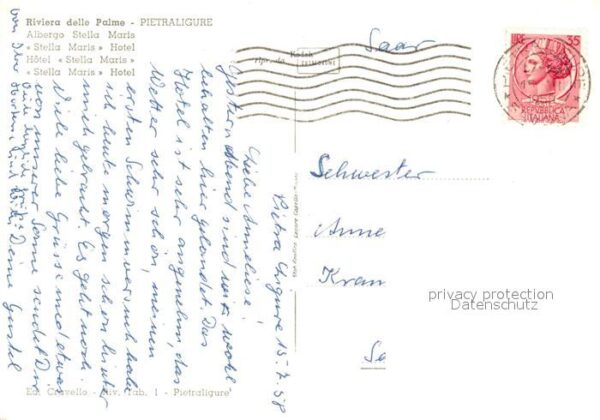 Riviera delle Palme - PIETRALIGURE
Albergo Stella Maris
« Stella Maris » Hotel
Hôtel « Stella Maris »
« Stella Maris » Hotel
Kodak
Saar
LIRE 35
REPUBBLICA
ITALIANA
Schwester
Anne
Kran
Se
privacy protection
Datenschutz
Pietra Ligure 15-7.58
Liebe Anneliese!
Gestern Abend sind wir wohl-
behalten hier gelandet. Das
Hotel ist sehr angenehm, das
Wetter sehr schön, meinen
ersten Schwimmversuch habe
ich heute morgen schon hinter
mich gebracht. Es geht noch.
Viele liebe Grüsse und etwas
von unserer Sonne sendet Dir
Deine Gustel
Ed. Cravello - Riv. Tab. 1 - Pietraligure